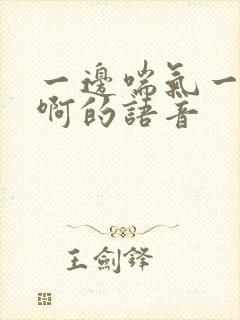 一邊喘氣一
啊的語音
王劍鋒